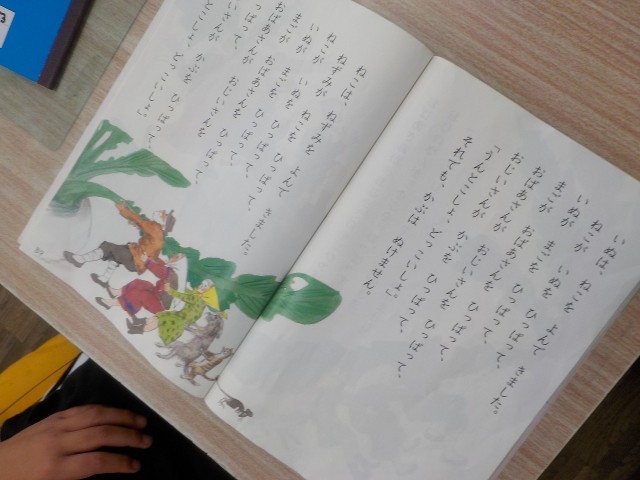 いぬは、ねこを よんで きました。
ねこが いぬを ひっぱって、
いぬが まごを ひっぱって、
まごが おばあさんを ひっぱって、
おばあさんが おじいさんを ひっぱって、
おじいさんが かぶを ひっぱって、
「うんとこしょ、どっこいしょ。」
それでも、かぶは ぬけません。
ねこは、ねずみを よんで きました。
ねずみが ねこを ひっぱって、
ねこが いぬを ひっぱって、
いぬが まごを ひっぱって、
まごが おばあさんを ひっぱって、
ばあさんが おじいさんを ひっぱって、
いさんが かぶを ひっぱって、
とこしょ、どっこいしょ。」